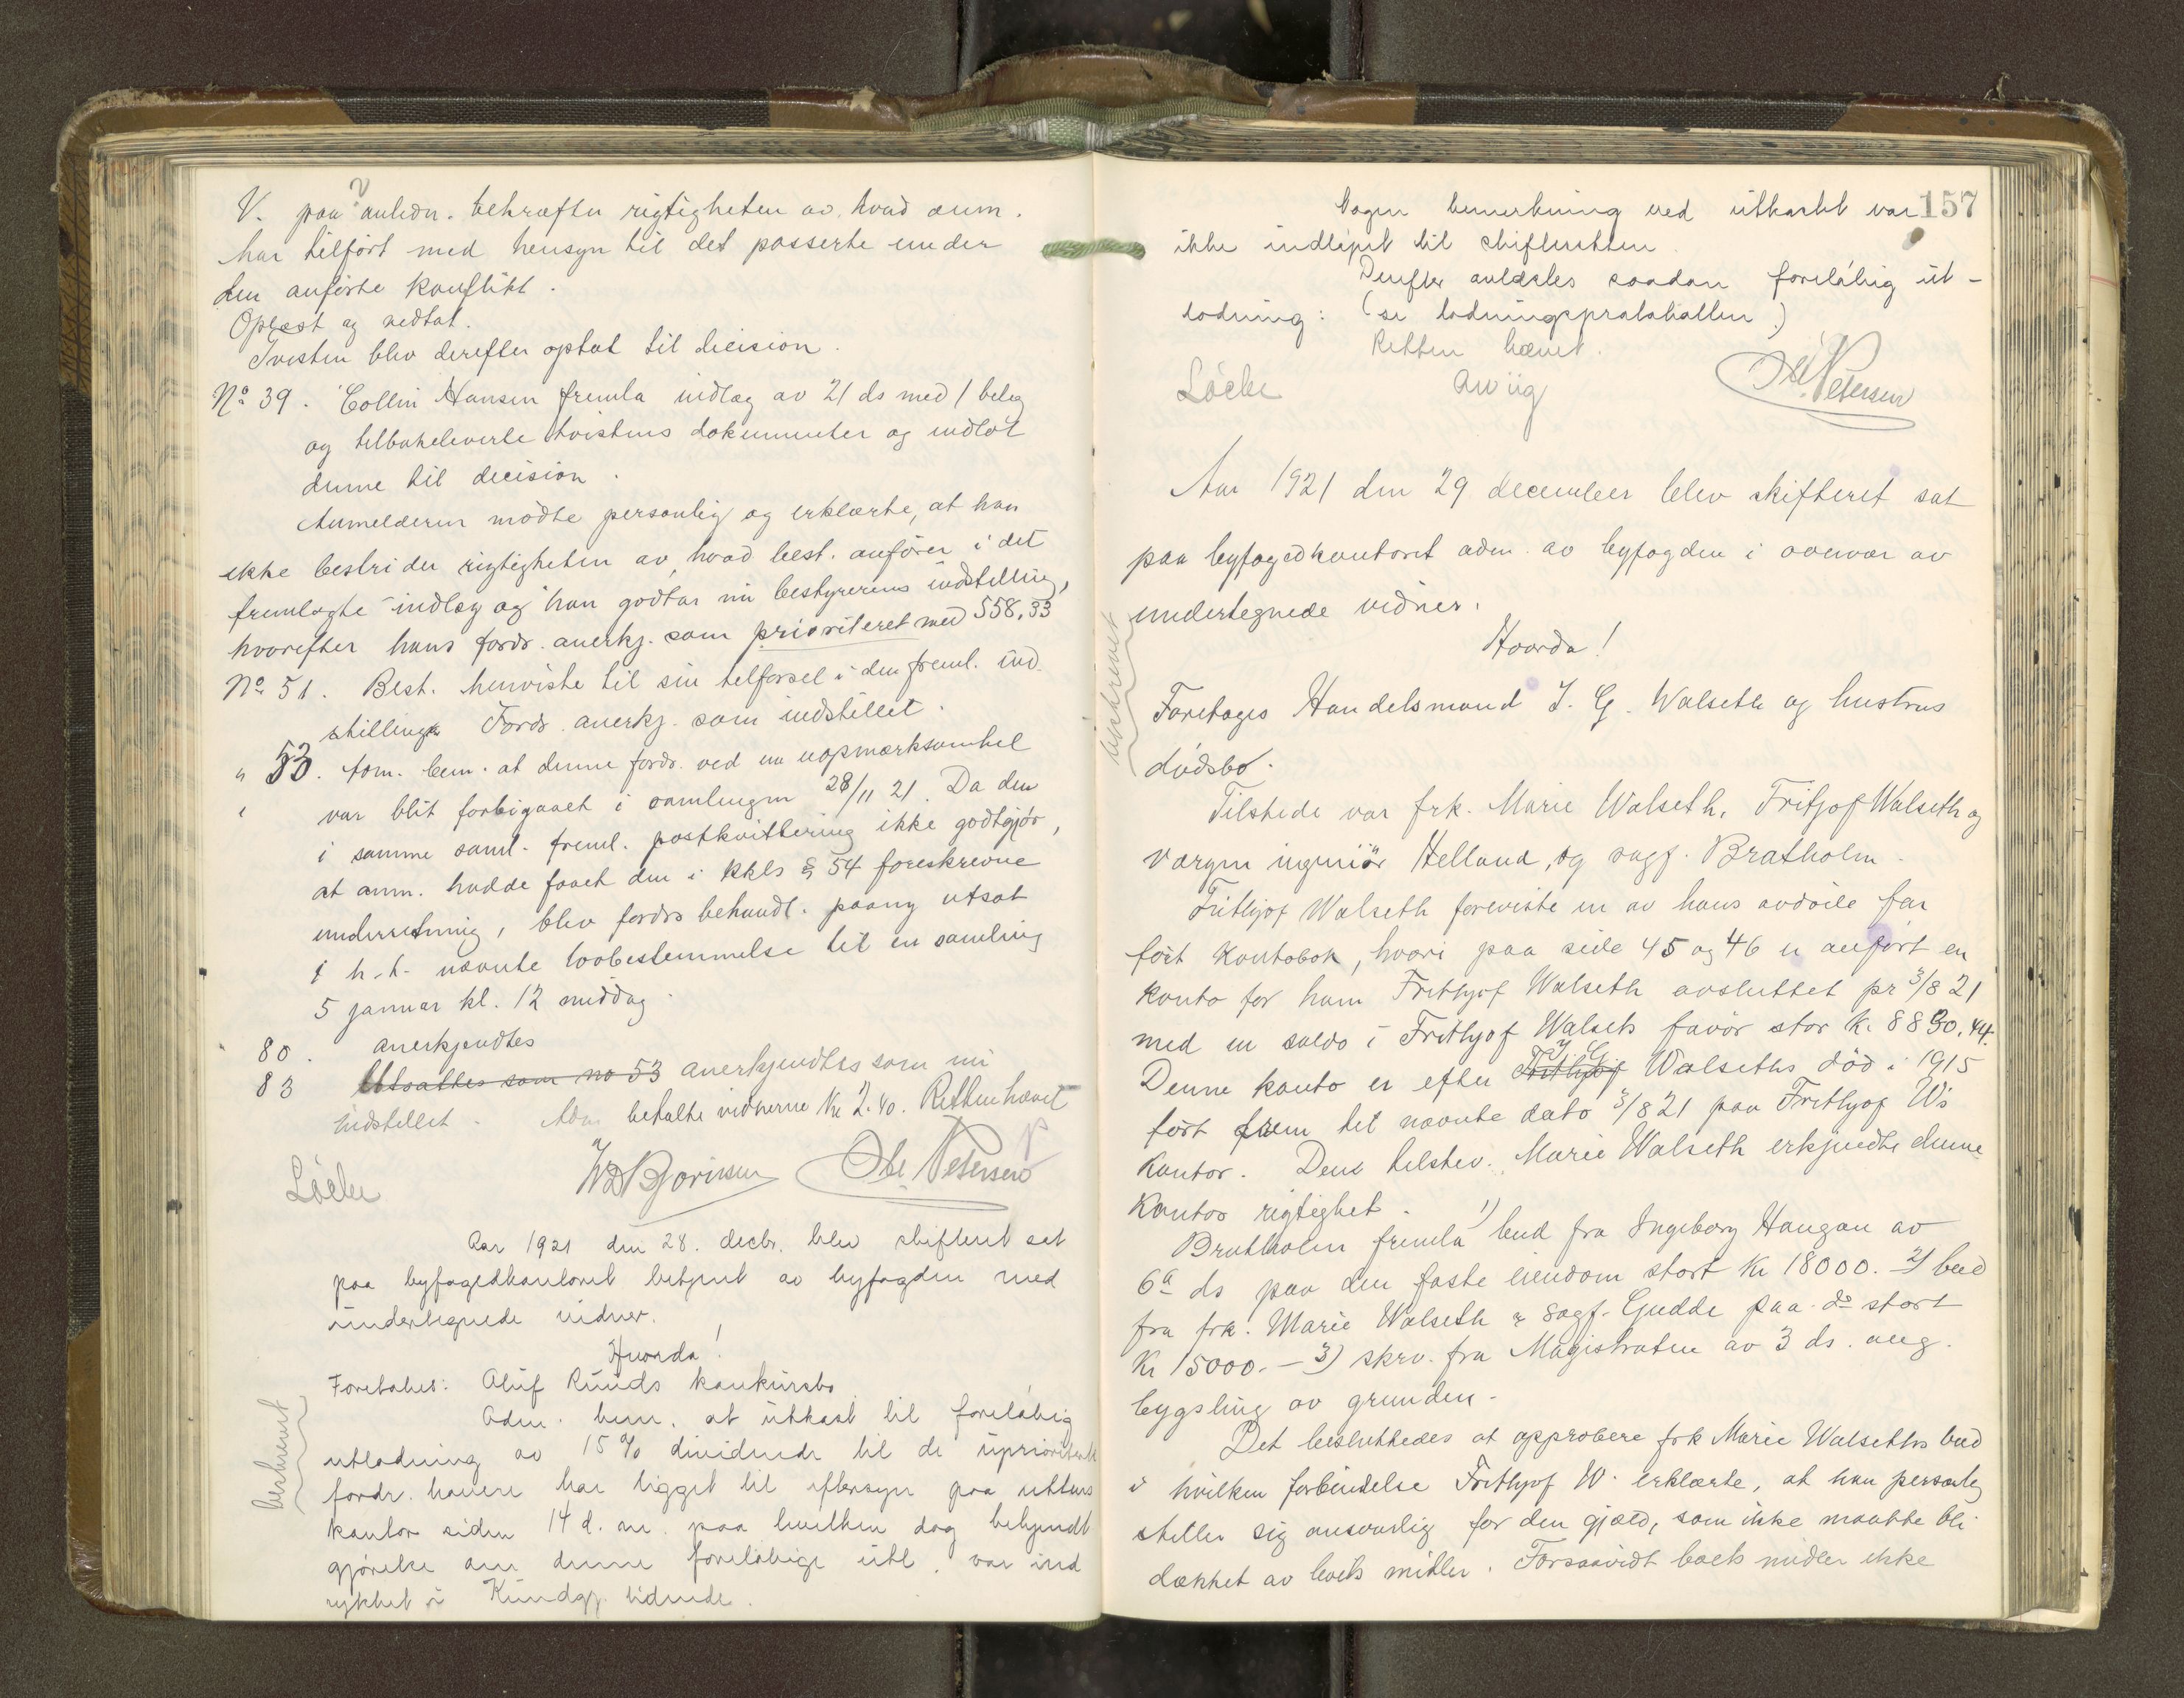 V. paa anledn. bekræfter rigtigheten av hvad anm.
har tilført med hensyn til det passerte under
den anførte konflikt.
Oplæst og vedtat.
Tvisten blev derefter optat til decision.
No 39. Collin Hansen fremla indlæg av 21 ds med 1 beleg
og tilbakeleverte tvistens dokumenter og indlot
denne til decision.
Anmelderen mødte personlig og erklærte, at han
ikke bestrider rigtigheten av, hvad best. anfører i det
fremlagte indlæg og han godtar nu bestyrerens indstilling,
hvorefter hans fordr. anerkj. som prioriteret med 558,33
No 51. Best. henviste til sin tilførsel i den freml. ind-
stilling. Fordr. anerkj. som indstillet.
" 53. Adm. bem. at denne fordr. ved en uopmerksomhet
var blit forbigaaet i samlingen 28/11 21. Da den
i samme saml. freml. postkvittering ikke godtgjør,
at anm. hadde faaet den i kkls § 54 foreskrevne
underretning, blev fordrs behandl. paany utsat
i h.t. nævnte lovbestemmelse til en samling
5 januar kl. 12 middag.
80. anerkjendtes
83 Utsattes som no 53 anerkjendtes som nu
indstillet. Adm betalte vidnerne Kr 2.40. Retten hævet
Löcke Ole Petersen
Aar 1921 den 28. decbr. blev skifteret sat
paa byfogedkontoret betjent av byfogden med
undertegnede vidner.
Hvorda!
Foretokes: Oluf Ruuds konkursbo
Adm. bem. at utkast til foreløbig
utlodning av 15 % dividende til de uprioriterte
fordr. havere har ligget til eftersyn paa rettens
kontor siden 14 d. m. paa hvilken dag bekjendt
gjørelse om denne foreløbige utl. var ind
rykket i Kundgj. tidende.
beskrevet
157
Nogen bemerkning ved utkastet var
ikke indløpet til skifteretten.
Derefter avlæstes saadan foreløbig ut-
lodning: (se lodningsprotokollen.)
Retten hævet.
Löcke Awiig Ole Petersen
Aar 1921 den 29 december blev skifteret sat
paa byfogedkontoret adm. av byfogden i overvær av
undertegnede vidner.
Hvorda!
Foretoges Handelsmand J. G. Walseth og hustrus
dødsbo.
Tilstede var frk. Marie Walseth, Fritjof Walseth og
værgen ingeniør Helland, og sagf. Bratholm.
Frithjof Walseth foreviste en av hans avdøde far
ført kontobok, hvori paa side 45 og 46 er anført en
konto for ham Frithjof Walseth avsluttet pr 3/8 21
med en saldo i Frithjof Walseths favør stor kr. 8890,44.
Denne konto er efter Frithjof J. G. Walseths død i 1915
ført frem til nævnte dato 3/8 21 paa Frithjof Ws
kontor. Den tilstev. Marie Walseth erkjendte denne
kontos rigtighet.
Bratholm fremla 1) bud fra Ingeborg Haugan av
6te ds paa den faste eiendom stort Kr 18000. 2) bud
fra frk. Marie Walseth v sagf. Gudde paa do stort
Kr 15000.- 3) skrv. fra Magistraten av 3 ds. ang.
bygsling av grunden.
Det besluttedes at approbere frk Marie Walseths bud
i hvilken forbindelse Frithjof W. erklærte, at han personlig
stiller sig ansvarlig for den gjæld, som ikke maatte bli
dækket av boets midler. Forsaavidt boets midler ikke
beskrevet